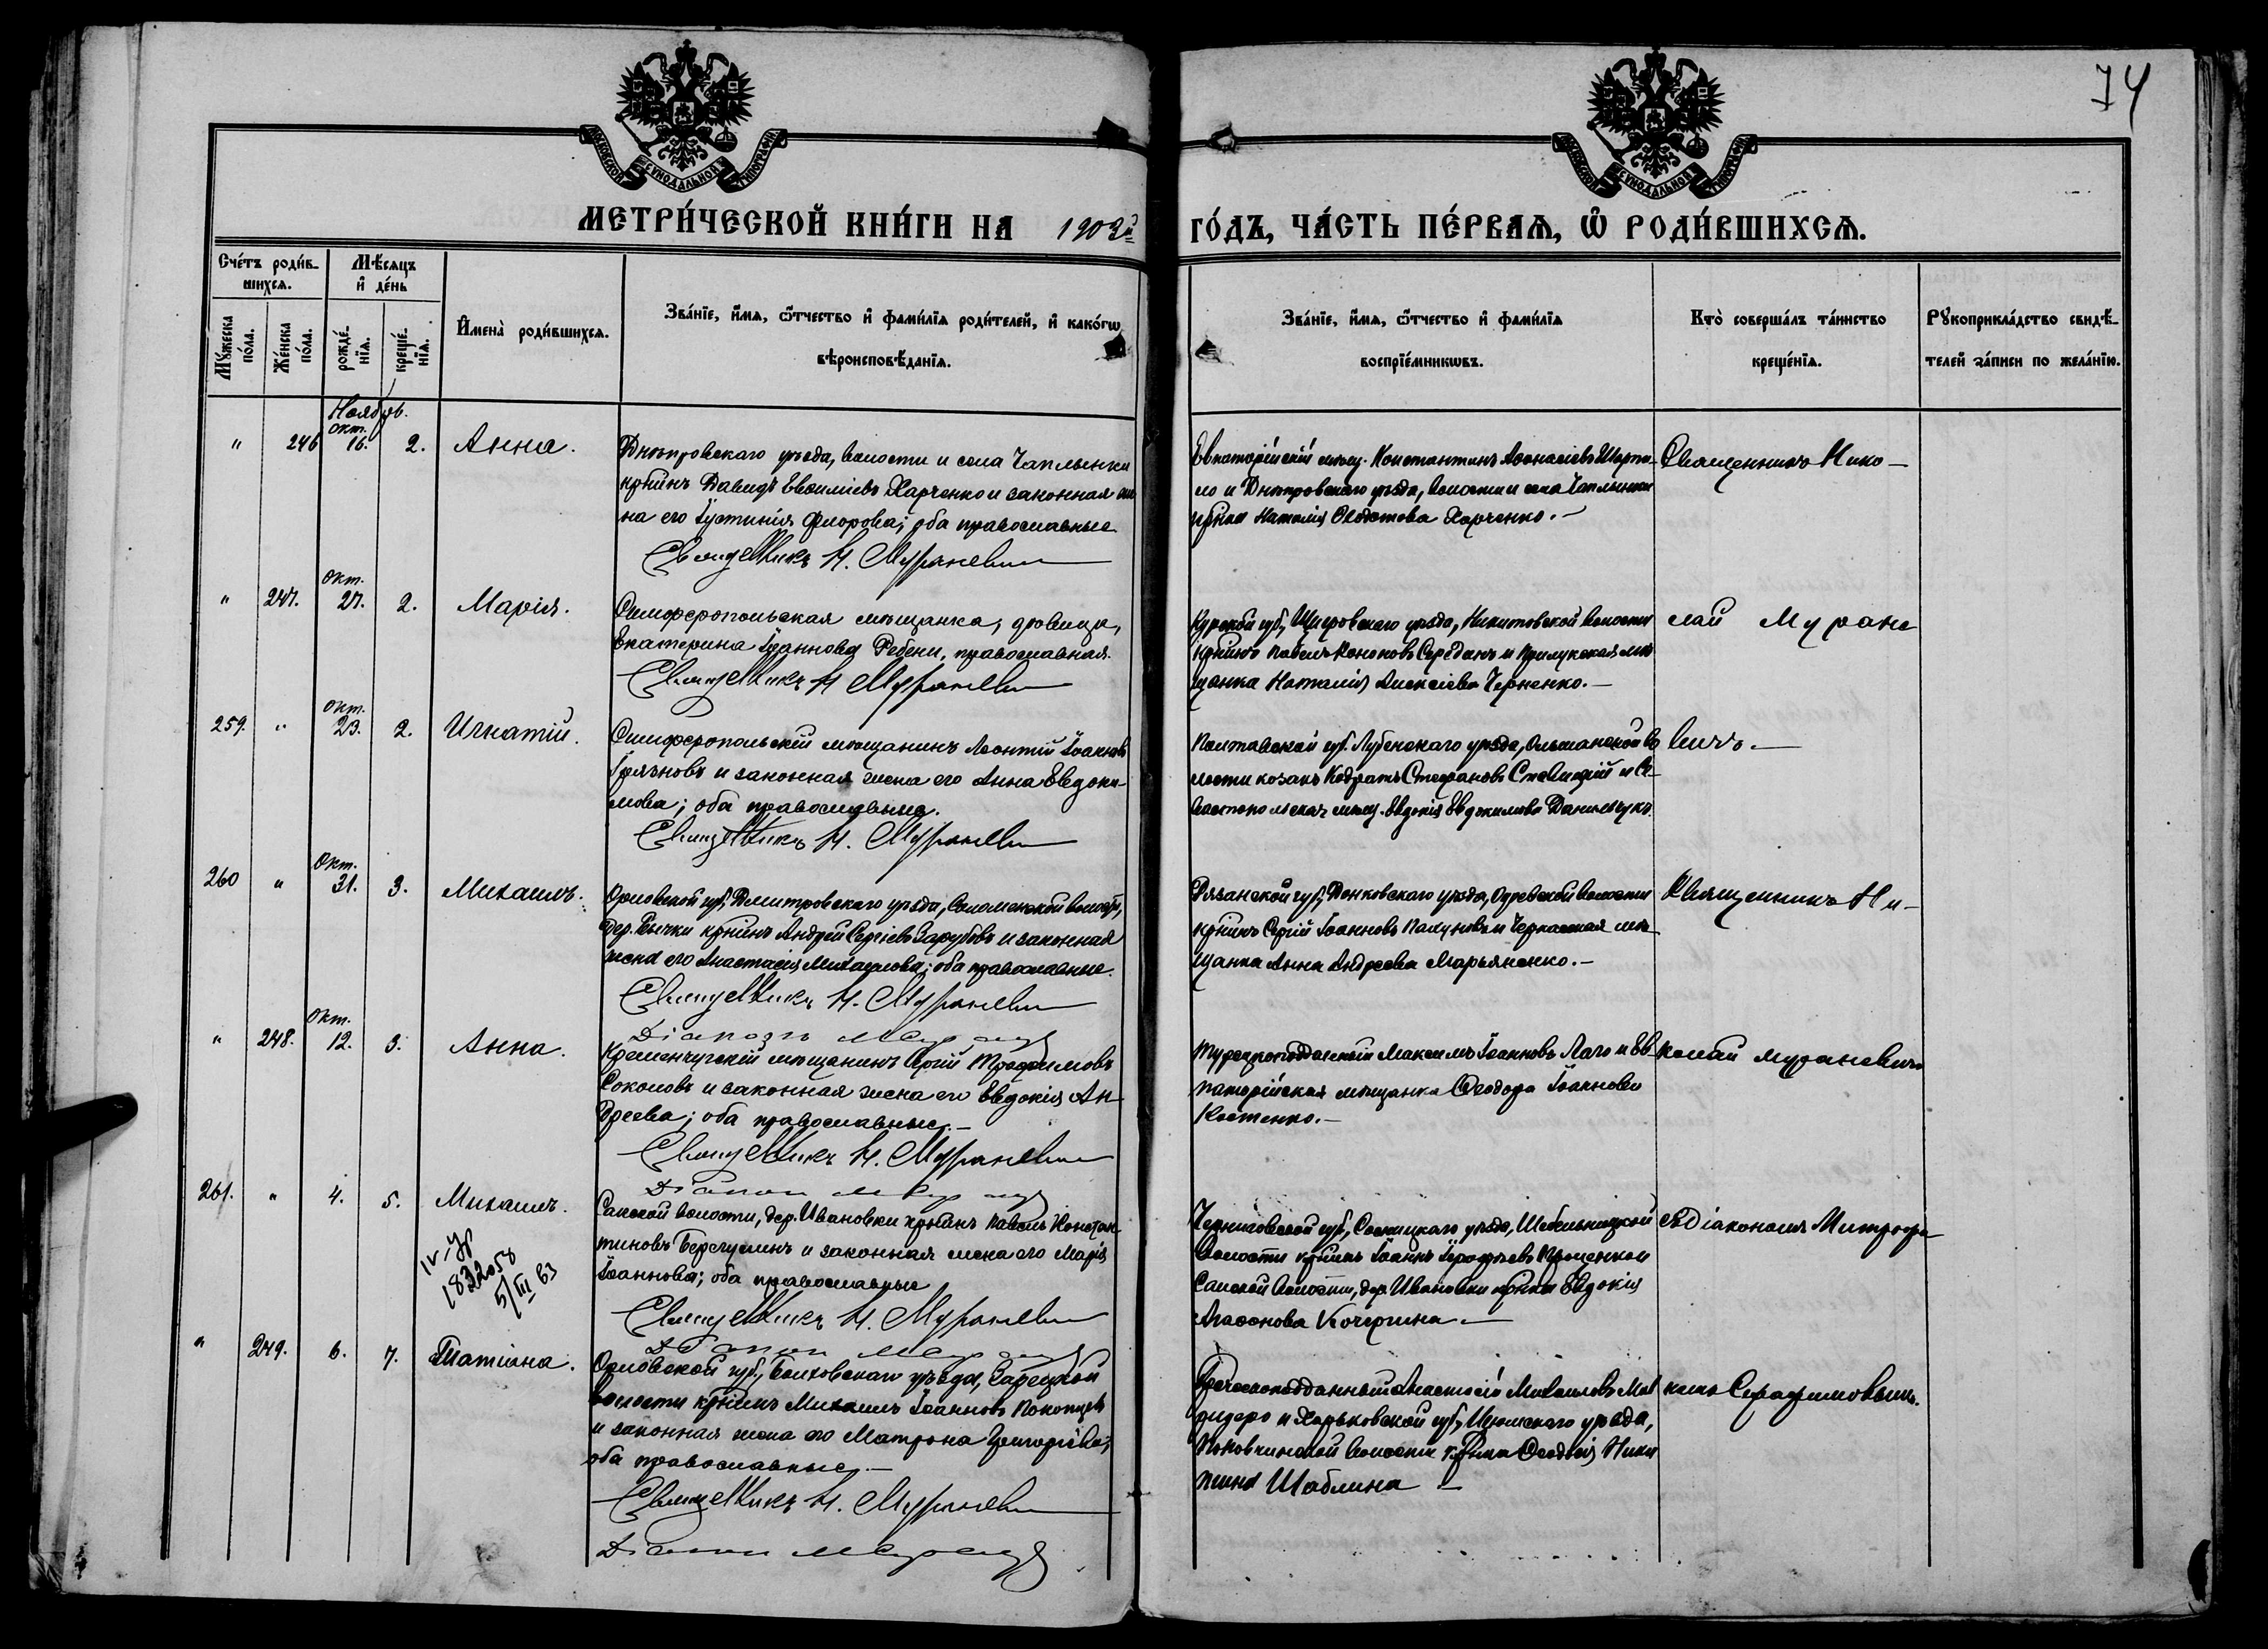 74
МОСКОВСКОЙ СѴНОДАЛЬНОЙ ТИПОГРАФІИ
МОСКОВСКОЙ СѴНОДАЛЬНОЙ ТИПОГРАФІИ
МЕТРИ́ЧЕСКОЙ КНИ́ГИ НА 1902й ГО́ДЪ, ЧА́СТЬ ПЕ́РВАѦ, Ѡ҆ РОДИ́ВШИХСѦ.
Сче́тъ роди́в-
шихсѧ.
Мꙋ́жеска по́ла.
Же́нска по́ла.
Мѣ́сѧцъ и҆ де́нь
рожде́-нїѧ.
креще́-нїѧ.
И҆мена̀ роди́вшихсѧ.
Зва́нїе, и҆́мѧ, ѻ҆́тчество и҆ фами́лїѧ роди́телей, и҆ како́гѡ
вѣроисповѣ́данїѧ.
Зва́нїе, и҆́мѧ, ѻ҆́тчество и҆ фами́лїѧ
воспрїе́мникѡвъ.
Кто̀ соверша́лъ та́инство
креще́нїѧ.
Рꙋкоприкла́дство свидѣ́-
телей за́писи по жела́нїю.
Ноябрь.
окт.
" 246 16. 2. Анна.
Днѣпровскаго уѣзда, волости и села Чаплынки
крнинъ Давидъ Евѳиміевъ Харченко и законная же
на его Іустинія Флорова; оба православные
Священникъ Н. Мураневич
Евпаторійскій мѣщ. Константинъ Аѳанасіевъ
ло и Днѣпровскаго уѣзда, волости и села Чаплынки
крнка Наталія Ѳеодотова Харченко.
Священникъ Нико-
окт.
" 247. 27. 2. Марія.
Симферопольская мѣщанка, дѣвица,
Екатерина Іоаннова Ребени, православная.
Священникъ Н Мураневич
Курской губ., Щигровскаго уѣзда, Никитовской волости
крнинъ Павелъ Кононовъ Середанъ и Прилукская мѣ
щанка Наталія Алексіева Черненко.
лай Муране
окт.
259. " 23. 2. Игнатій.
Симферопольскій мѣщанинъ Леонтій Іоанновъ
Грязновъ и законная жена его Анна Евдоки-
мова; оба православные.
Священникъ Н. Мураневич
Полтавской губ. Лубенскаго уѣзда, Ольшанской во
лости козакъ Кодратъ Стефановъ и Се-
вастопольская мѣщ. Евдокія Евдокимова Данильчукъ.
вичъ.
Окт.
260 " 31. 3. Михаилъ.
Орловской губ., Дмитровскаго уѣзда, Соломенской волости,
дер. Рычки крнинъ Андрей Сергіевъ Зарубовъ и законная
жена его Анастасія Михаилова; оба православные.
Священникъ Н. Мураневич
Діаконъ
Рязанской губ., Донковскаго уѣзда, волости
крнинъ Сергій Іоанновъ и Черкасская мѣ
щанка Анна Андреева Марьяненко.
Священникъ Ни-
окт.
" 248. 12. 3. Анна.
Кременчугскій мѣщанинъ Сергій Трофимовъ
Соколовъ и законная жена его Евдокія Ан-
дреева; оба православные.
Священникъ Н. Мураневич
Діакон
Турецкоподданный Максимъ Іоанновъ Лаго и Ев-
паторійская мѣщанка Ѳеодора Іоаннова
Костенко.
колай Мураневичъ
261. " 4. 5. Михаилъ.
IV-УР
1832058
5/III 63
Сакской волости, дер. Ивановки крнинъ Павелъ Констан
тиновъ и законная жена его Марія
Іоаннова; оба православные
Священникъ Н. Мураневич
Діакон
Черниговской губ., Сосницкаго уѣзда,
волости крнинъ Іоаннъ
Сакской волости, дер. Ивановки крнка Евдокія
Агаѳонова Кочергина.
съ Діакономъ Митрофа-
" 249. 6. 7. Татіана.
Орловской губ., Болховскаго уѣзда, Зарецкой
волости крнинъ Михаилъ Іоанновъ
и законная жена его Матрона Григоріева;
оба православные.
Священникъ Н. Мураневич
Діакон
Греческоподданный Анастасій Михаиловъ
и Харьковской губ., Изюмскаго уѣзда,
волости крнка Ѳеодосія Ники
тина Шаблина
номъ Серафимовымъ.